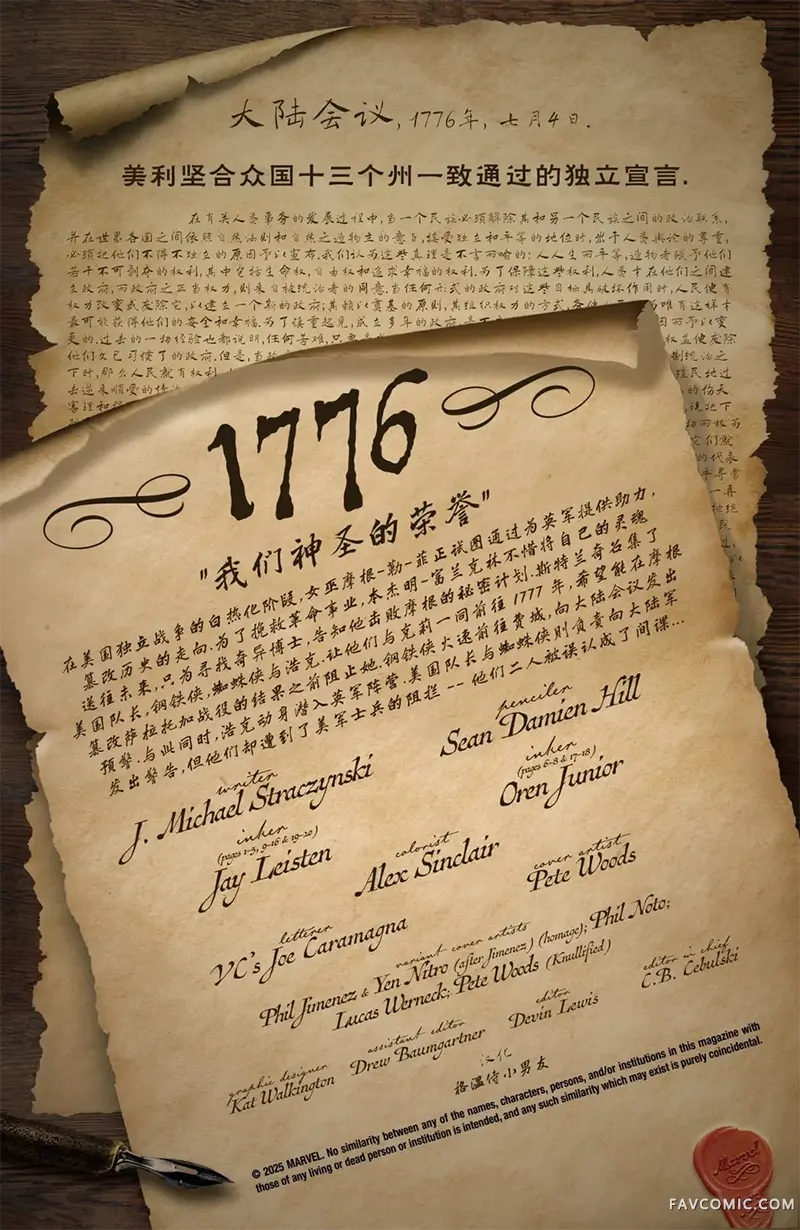 大陆会议, 1776年, 七月4日.
美利坚合众国十三个州一致通过的独立宣言.
在有关人类事务的发展过程中,当一个民族必须解除其和另一个民族之间的政治联系,
并在世界各国之间依照自然法则和自然之造物主的意旨,接受独立和平等的地位时,出于人类舆论的尊重,
必须把他们不得不独立的原因予以宣布.我们认为这些真理是不言而喻的: 人人生而平等,造物者赋予他们
若干不可剥夺的权利,其中包括生命权,自由权和追求幸福的权利.为了保障这些权利,人类才在他们之间建
立政府,而政府之正当权力,则来自被统治者的同意.当任何形式的政府对这些目标具破坏作用时,人民便有
权力改变或废除它,以建立一个新的政府;其赖以奠基的原则,其组织权力的方式,务使
最可能获得他们的安全和幸福.为了慎重起见,成立多年的政府,
更的.过去的一切经验也都说明,任何苦难,只要
他们久已习惯了的政府.但是,当
下时,那么人民就有权利,
去逆来顺受的情
害理和
1776
"我们神圣的荣誉"
在美国独立战争的白热化阶段,女巫摩根-勒-菲正试图通过为英军提供助力,
篡改历史的走向.为了挽救革命事业,本杰明-富兰克林不惜将自己的灵魂
送往未来,只为寻找奇异博士,告知他击败摩根的秘密计划.斯特兰奇召集了
美国队长,钢铁侠,蜘蛛侠与浩克.让他们与克莉一同前往 1777 年,希望能在摩根
篡改萨拉托加战役的结果之前阻止她.钢铁侠火速前往费城,向大陆会议发出
预警.与此同时,浩克动身潜入英军阵营.美国队长与蜘蛛侠则负责向大陆军
发出警告,但他们却遭到了美军士兵的阻拦 -- 他们二人被误认成了间谍...
writer
J. Michael Straczynski
penciler
Sean Damien Hill
inker
(pages 1-5, 9-16 & 19-20)
Jay Leisten
inker
(pages 6-8 & 17-18)
Oren Junior
colorist
Alex Sinclair
cover artist
Pete Woods
letterer
VC's Joe Caramagna
variant cover artists
Phil Jimenez & Yen Nitro (after Jimenez) (homage); Phil Noto;
Lucas Werneck; Pete Woods (Knullified)
graphic designer
Kat Walkington
assistant editor
Drew Baumgartner
editor
Devin Lewis
editor in chief
C.B. Cebulski
汉化
格温侍小男友
© 2025 MARVEL. No similarity between any of the names, characters, persons, and/or institutions in this magazine with
those of any living or dead person or institution is intended, and any such similarity which may exist is purely coincidental.
Marvel
FAVCOMIC.COM